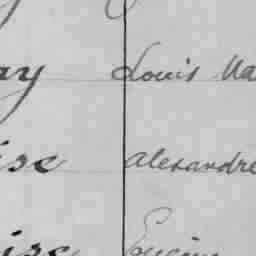 ay Louis Ma
ise Alexandre
ise Eugène